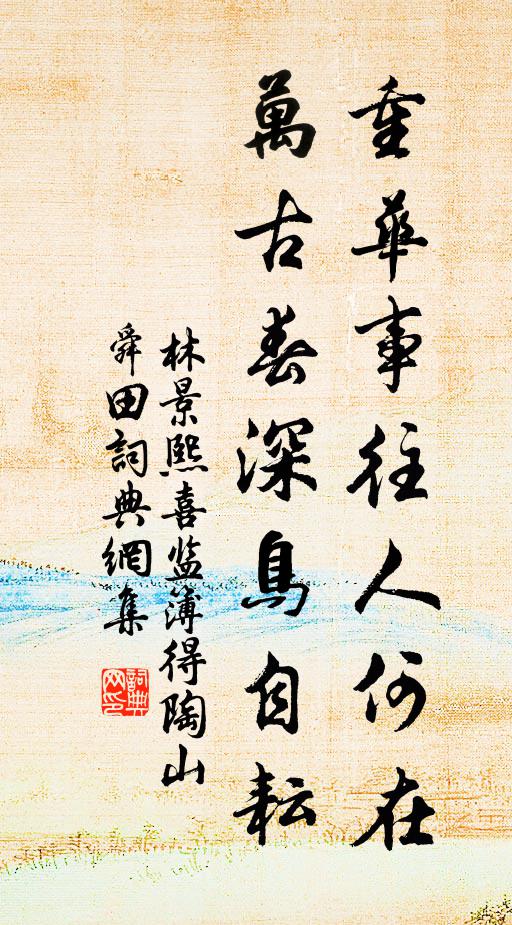 重華事往人何在
萬古春深鳥自耘
林景熙喜监簿得陶山
舜田詞典網集
詞典
网印